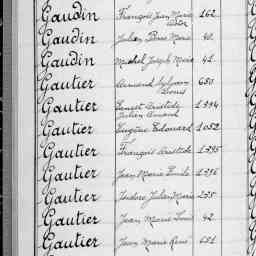 Gaudin François Jean Marie 162
Gaudin Julien Pierre Marie 40
Gaudin Michel Joseph Marie 41
Gautier Armand Sylvain Louis 650
Gautier Ernest Aristide Julien Amand 1994
Gautier Eugène Edouard 1052
Gautier François Aristide 1995
Gautier Jean Marie Emile 1996
Gautier Isidore Julien Marie 255
Gautier Jean Marie Louis 42
Gautier Jean Marie René 651